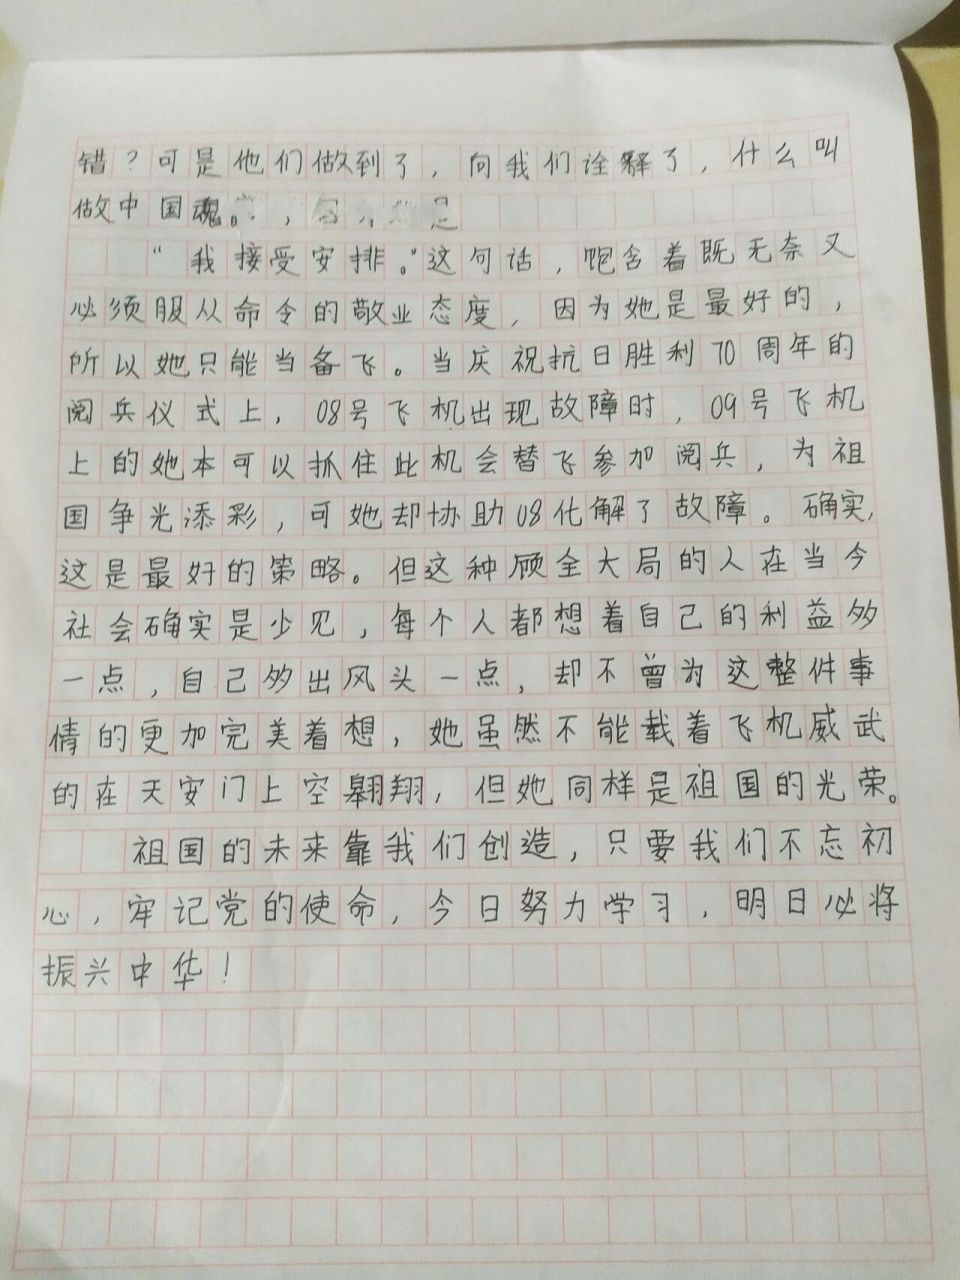 错？可是他们做到了，向我们诠释了，什么叫
做中国魂。
“我接受安排。”这句话，饱含着既无奈又
必须服从命令的敬业态度，因为她是最好的，
所以她只能当备飞。当庆祝抗日胜利70周年的
阅兵仪式上，08号飞机出现故障时，09号飞机
上的她本可以抓住此机会替飞参加阅兵，为祖
国争光添彩，可她却协助08化解了故障。确实，
这是最好的策略。但这种顾全大局的人在当今
社会确实是少见，每个人都想着自己的利益多
一点，自己多出风头一点，却不曾为这整件事
情的更加完美着想，她虽然不能载着飞机威武
的在天安门上空翱翔，但她同样是祖国的光荣。
祖国的未来靠我们创造，只要我们不忘初
心，牢记党的使命，今日努力学习，明日必将
振兴中华！